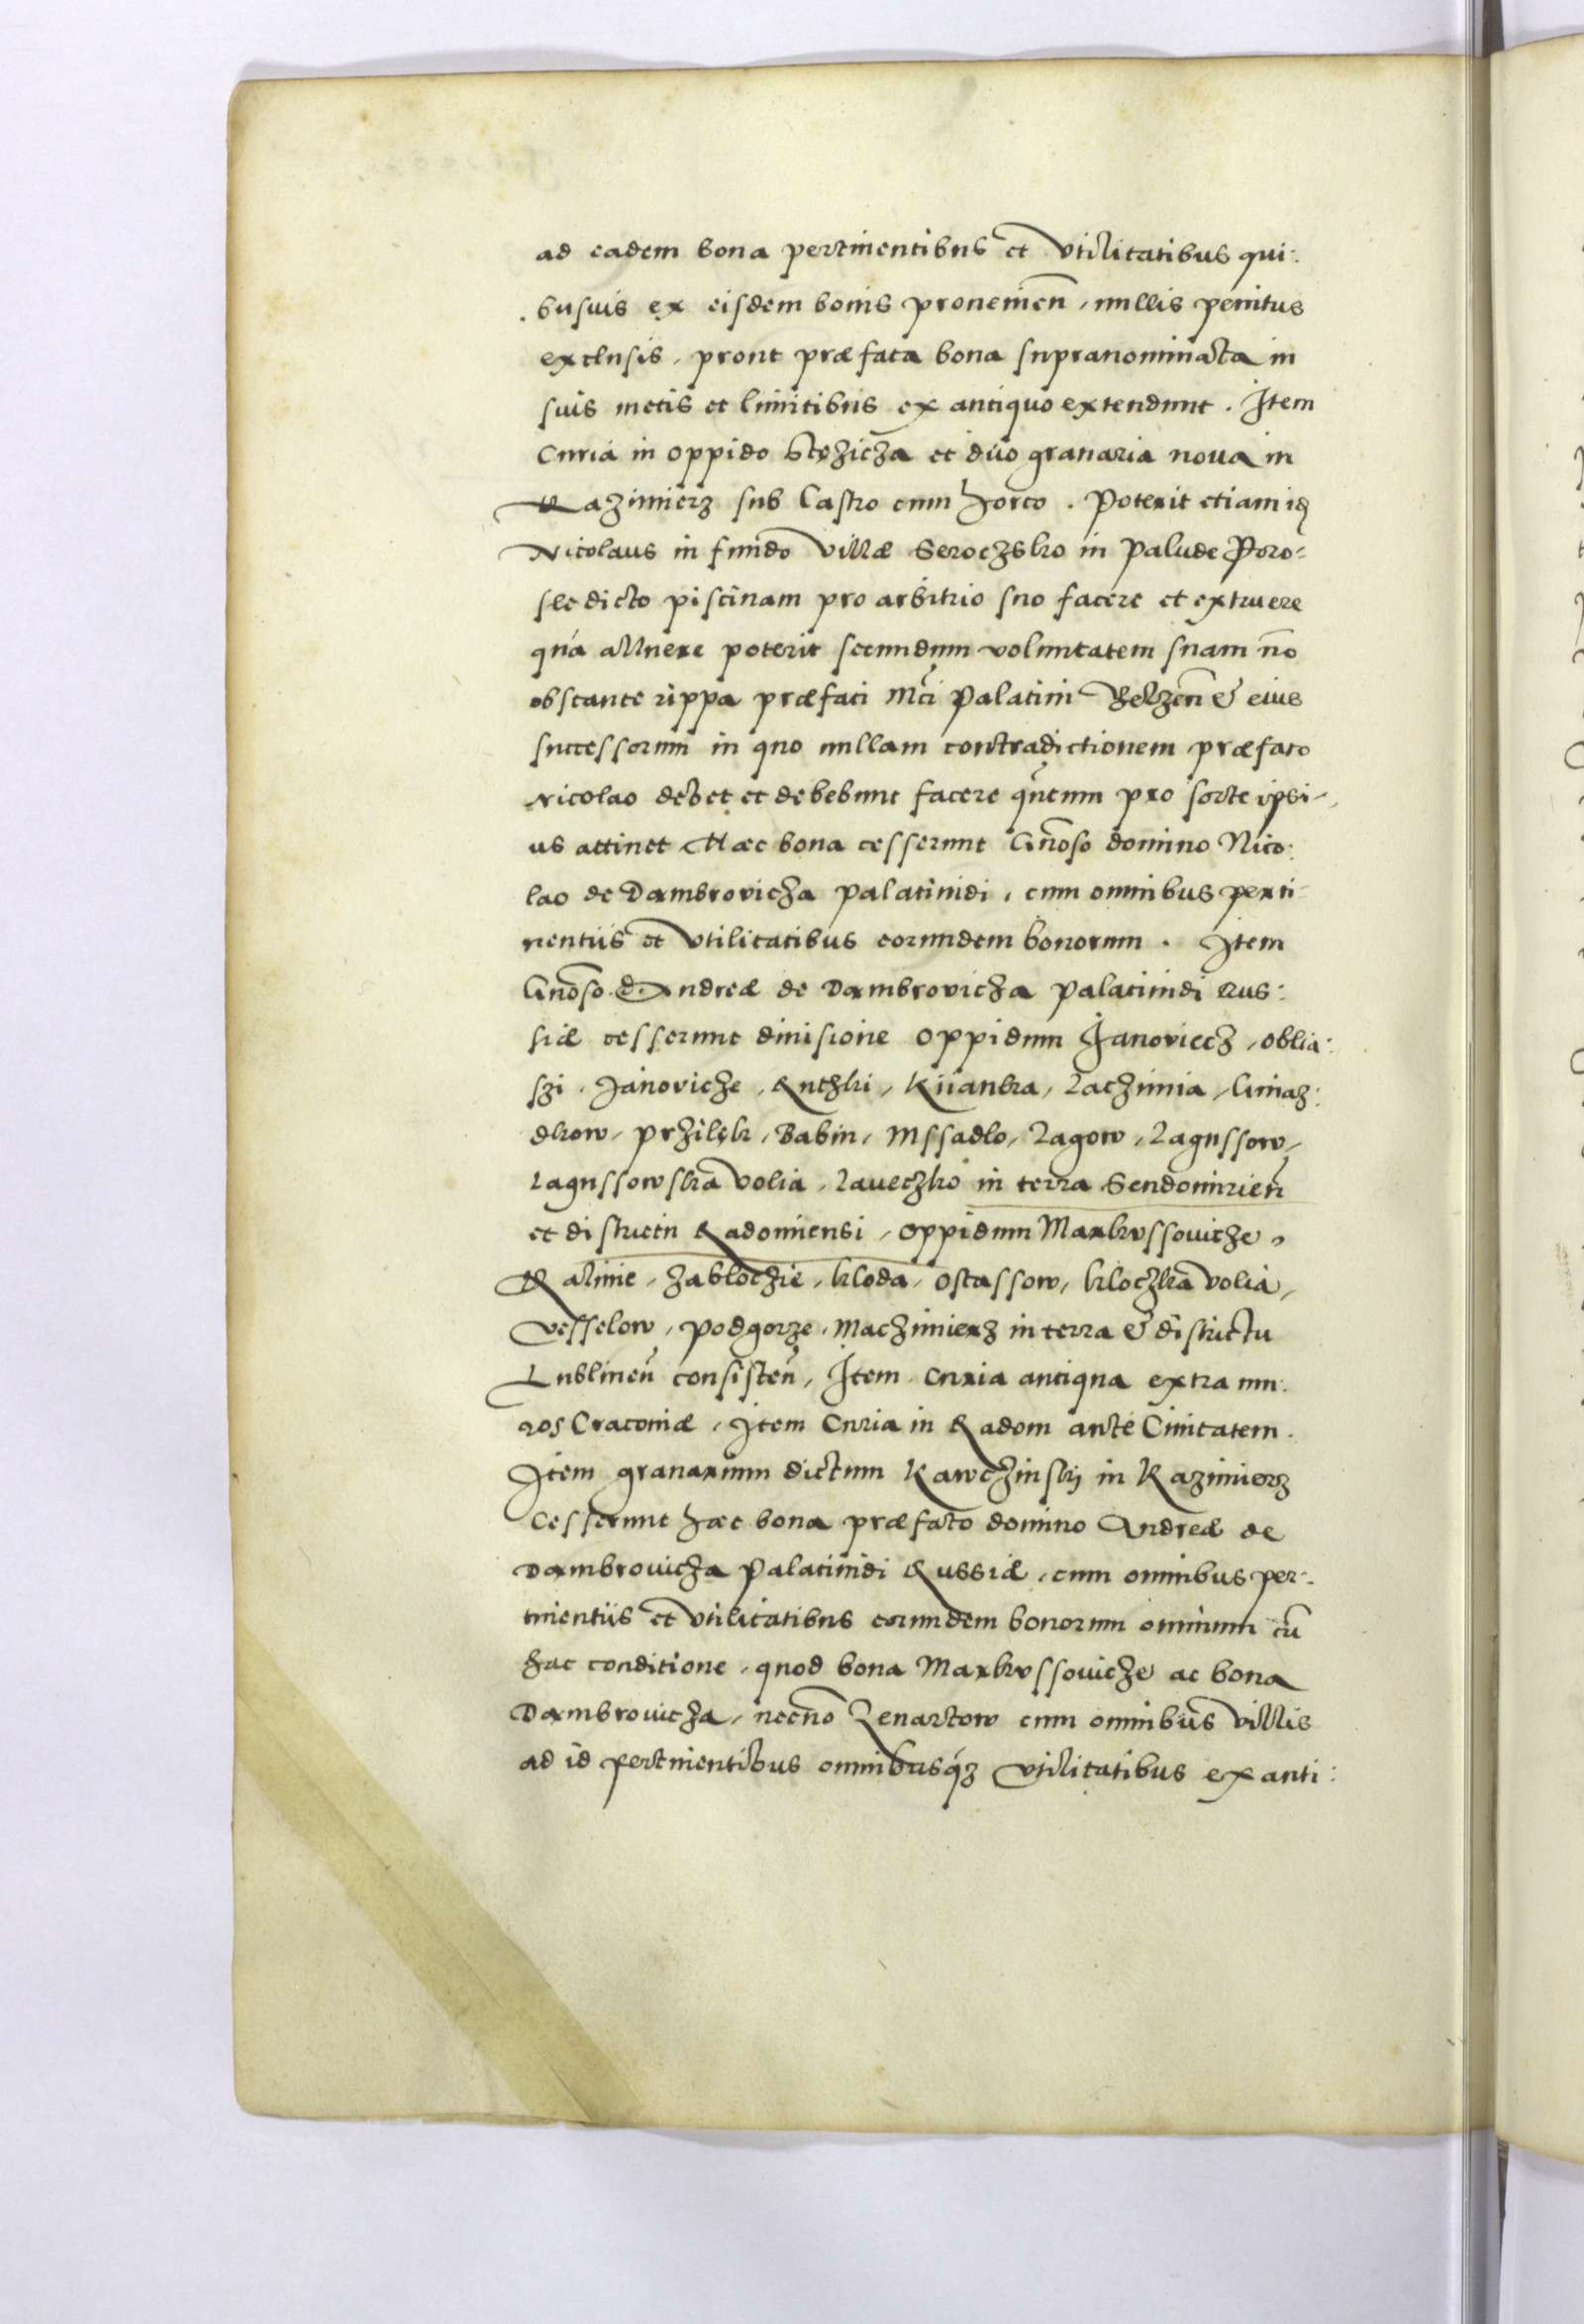 ad eadem bona pertinentibus et vtilitatibus qui:
busuis ex eisdem bonis prouenien̄, nullis penitus
exclusis, prout præfata bona supranominata in
suis metis et limitibus ex antiquo extendunt. Item
Curia in oppido Stężicza et duo granaria noua in
Kazimierz sub Castro cum horto. Poterit etiam idē
Nicolaus in fundo villæ Seroczsko in Palude Poro:
sle dicto piscinam pro arbitrio suo facere et extruere
quā alluere poterit secundum voluntatem suam nō
obstante rippa præfati Mci Palatini Belzen̄ & eius
successorum in quo nullam contradictionem præfato
Nicolao debet et debebunt facere q̄ntum pro sorte ipsi-
us attinet Hæc bona cesserunt Gn̄oso domino Nico:
lao de Dambrovicza palatinidi, cum omnibus perti-
nentiis et vtilitatibus eorundem bonorum. Item
Gn̄oso d. Andreæ de Dambrovicza palatinidi Rus:
siæ cesserunt diuisione oppidum Janoviecz, oblia:
szi, Janovicze, Rutzki, Kijanka, Laczimia, Gniaz:
dkow, Przilęk, Babin, Mssadlo, Lagow, Lagussow,
Lagussowska volia, Laveczko in terra Sendomirien̄
et districtu Radomiensi, oppidum Markvssouicze,
Kalinie, Zabłoczie, kloda, ostassow, kloczka volia,
Vesselow, podgorze, Maczimierz in terra & districtu
Lublinen̄ consisten̄, Item Curia antiqua extra mu:
ros Cracouiæ, Item Curia in Radom ante Ciuitatem.
Item granarium dictum Kawczinskij in Kazimierz
Cesserunt hæc bona præfato domino Andreæ de
Dambrouicza Palatinidi Russiæ, cum omnibus per:
tinentiis et vtilitatibus eorundem bonorum omnium cū
hac conditione, quod bona Markvssouicze ac bona
Dambrouicza, necnō Zenartow cum omnibus villis
ad id pertinentibus omnibusq́z vtilitatibus ex anti: